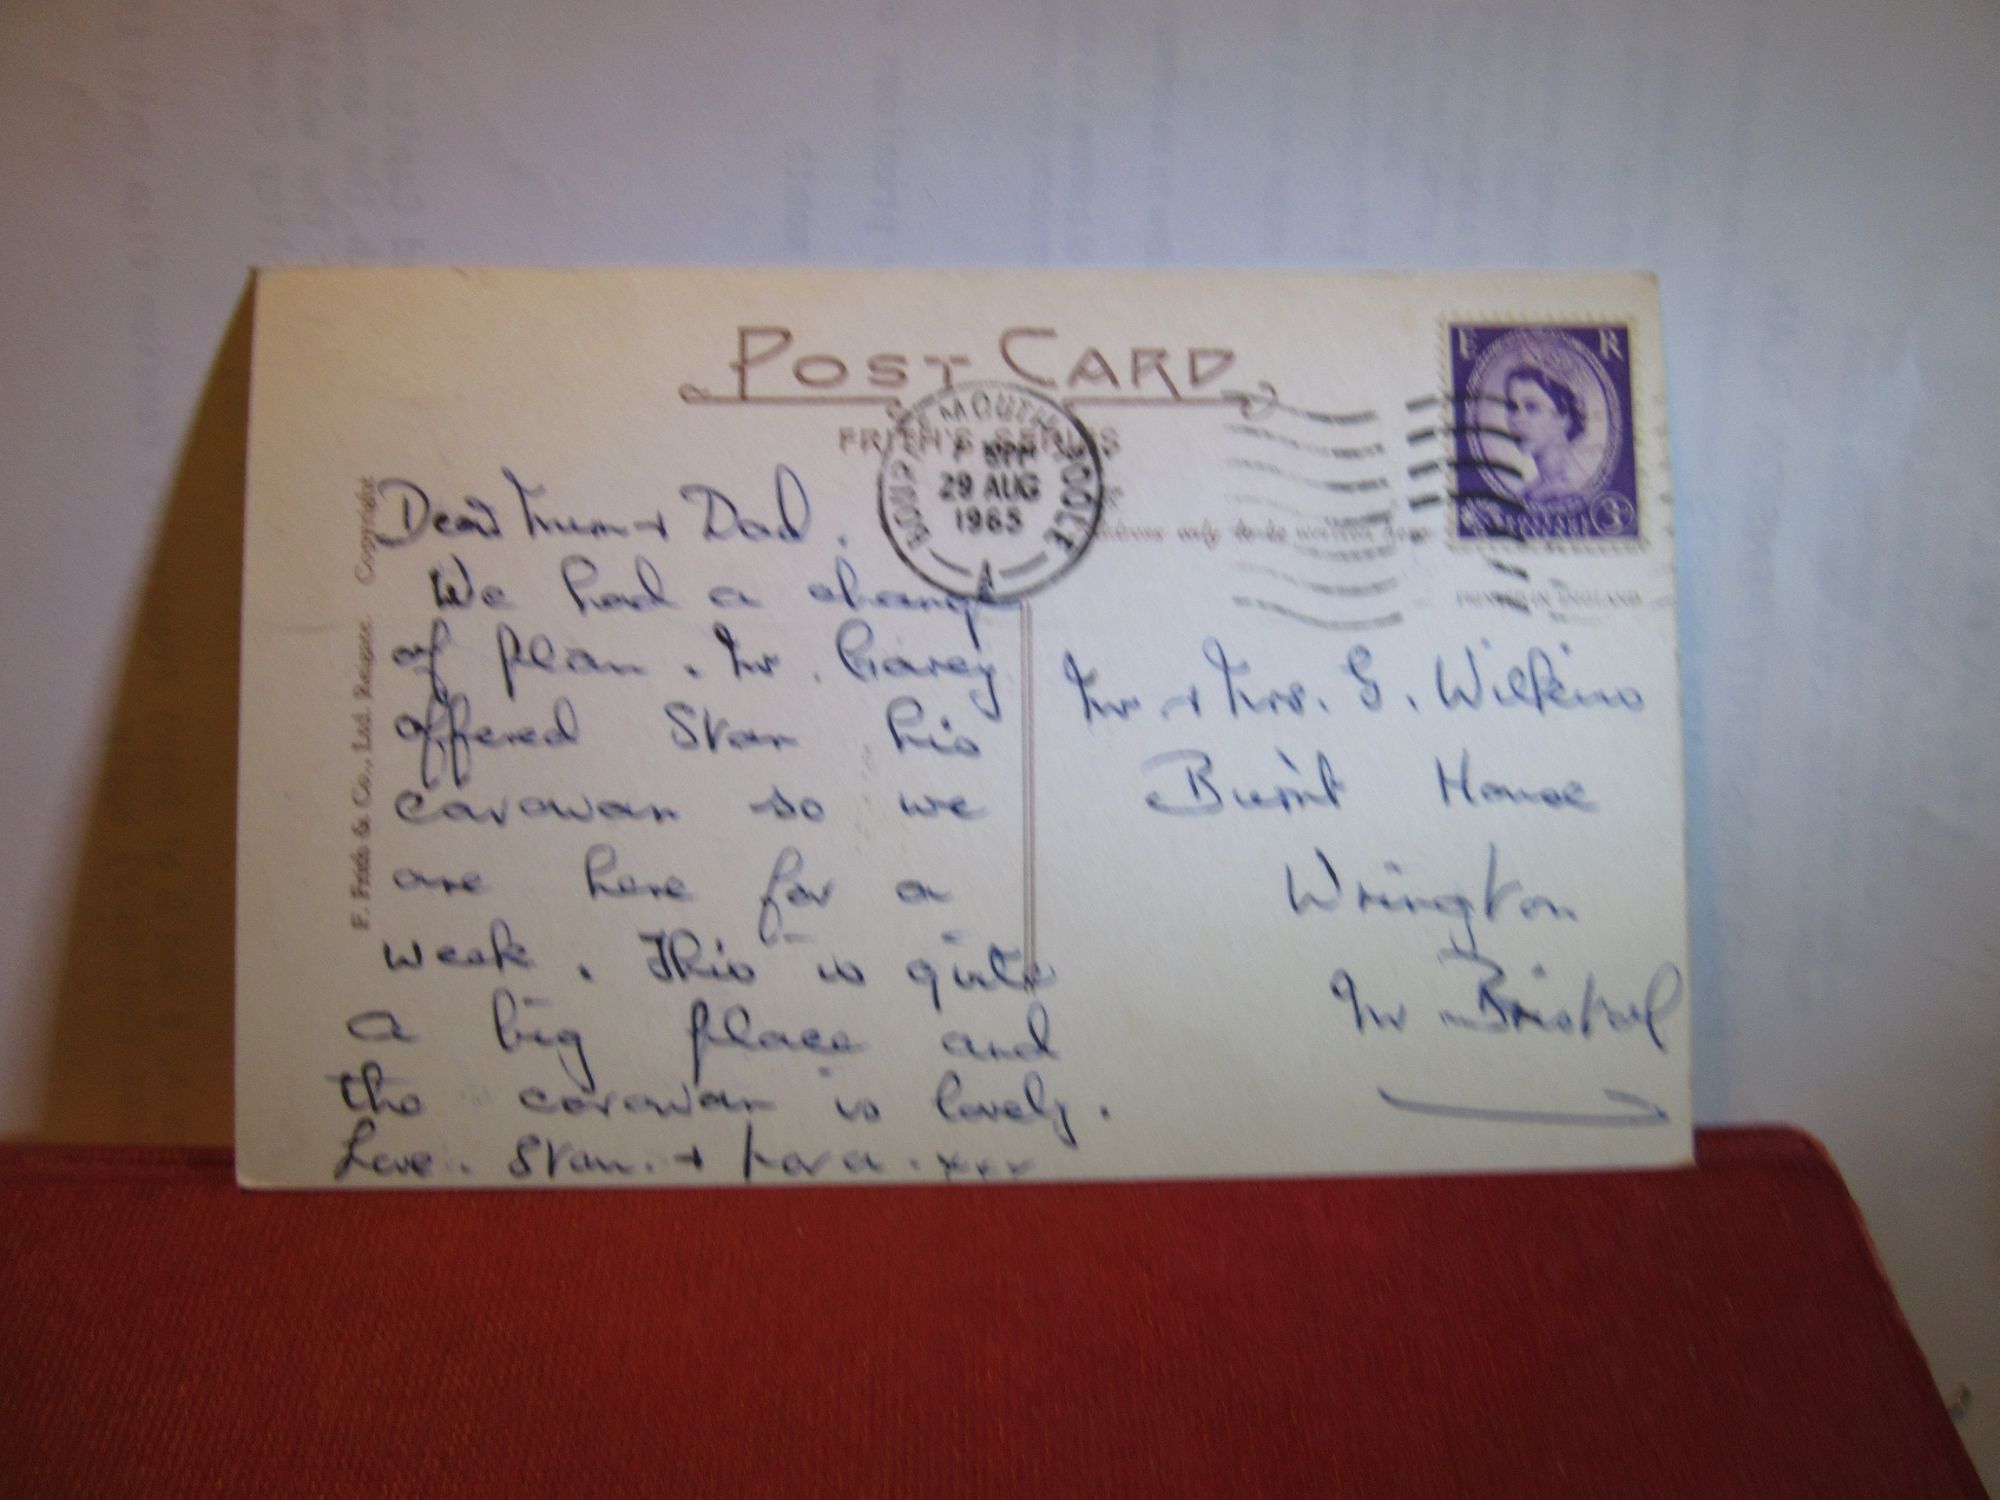 POST CARD
FRITH'S SERIES
BOURNEMOUTH POOLE
PM
29 AUG
1965
A
E R
3D
Address only to be written here
PRINTED IN ENGLAND
F. Frith & Co., Ltd. Reigate. Copyright
Dear Mum + Dad.
We had a change
of plan. Mr.
offered Stan his
caravan so we
are here for a
week. This is quite
a big place and
the caravan is lovely.
Love. Stan. + xxx
Mr + Mrs. G. Wilkins
Burnt House
Wrington
Nr Bristol